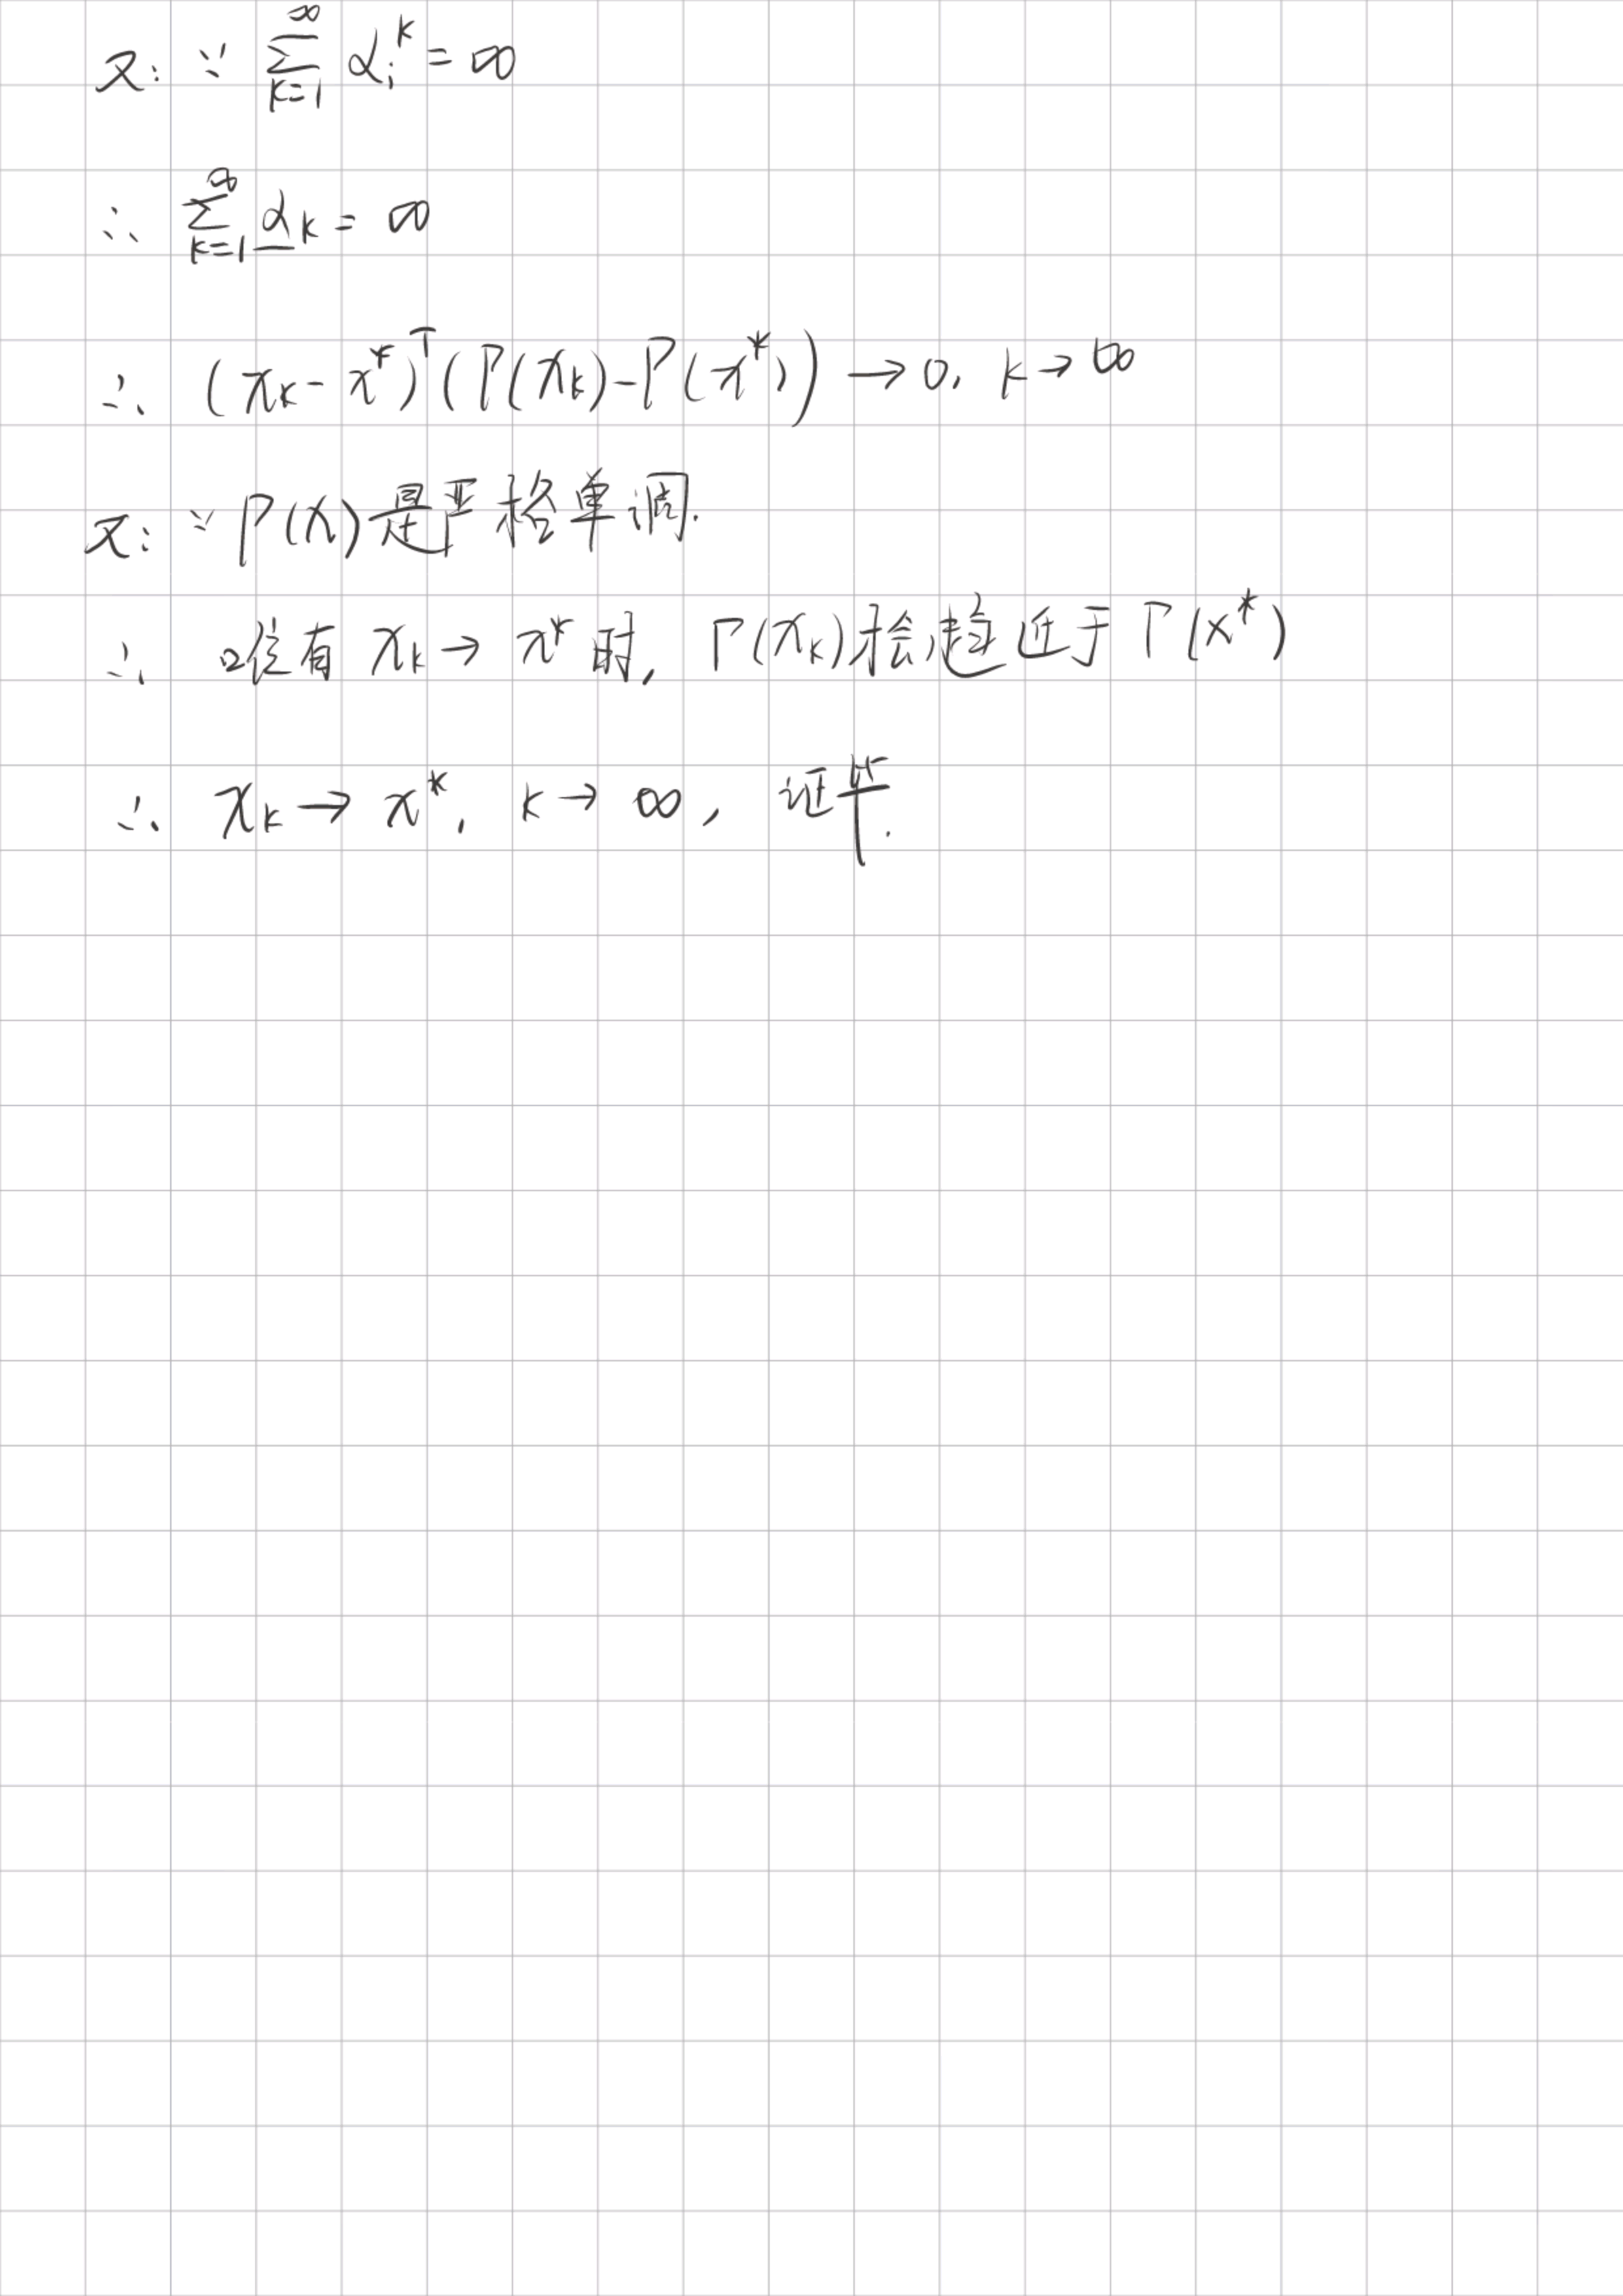 又: ∵ ∑_{k=1}^{∞} α_i^k = ∞
∴ ∑_{k=1}^{∞} \underline{α}_k = ∞
∴ (x_k - x^*)^T (Γ(x_k) - Γ(x^*)) → 0, k → ∞
又: ∵ Γ(x) 是严格单调.
∴ 没有 x_k → x^* 时, Γ(x_k) 才会趋近于 Γ(x^*)
∴ x_k → x^*, k → ∞, 证毕.